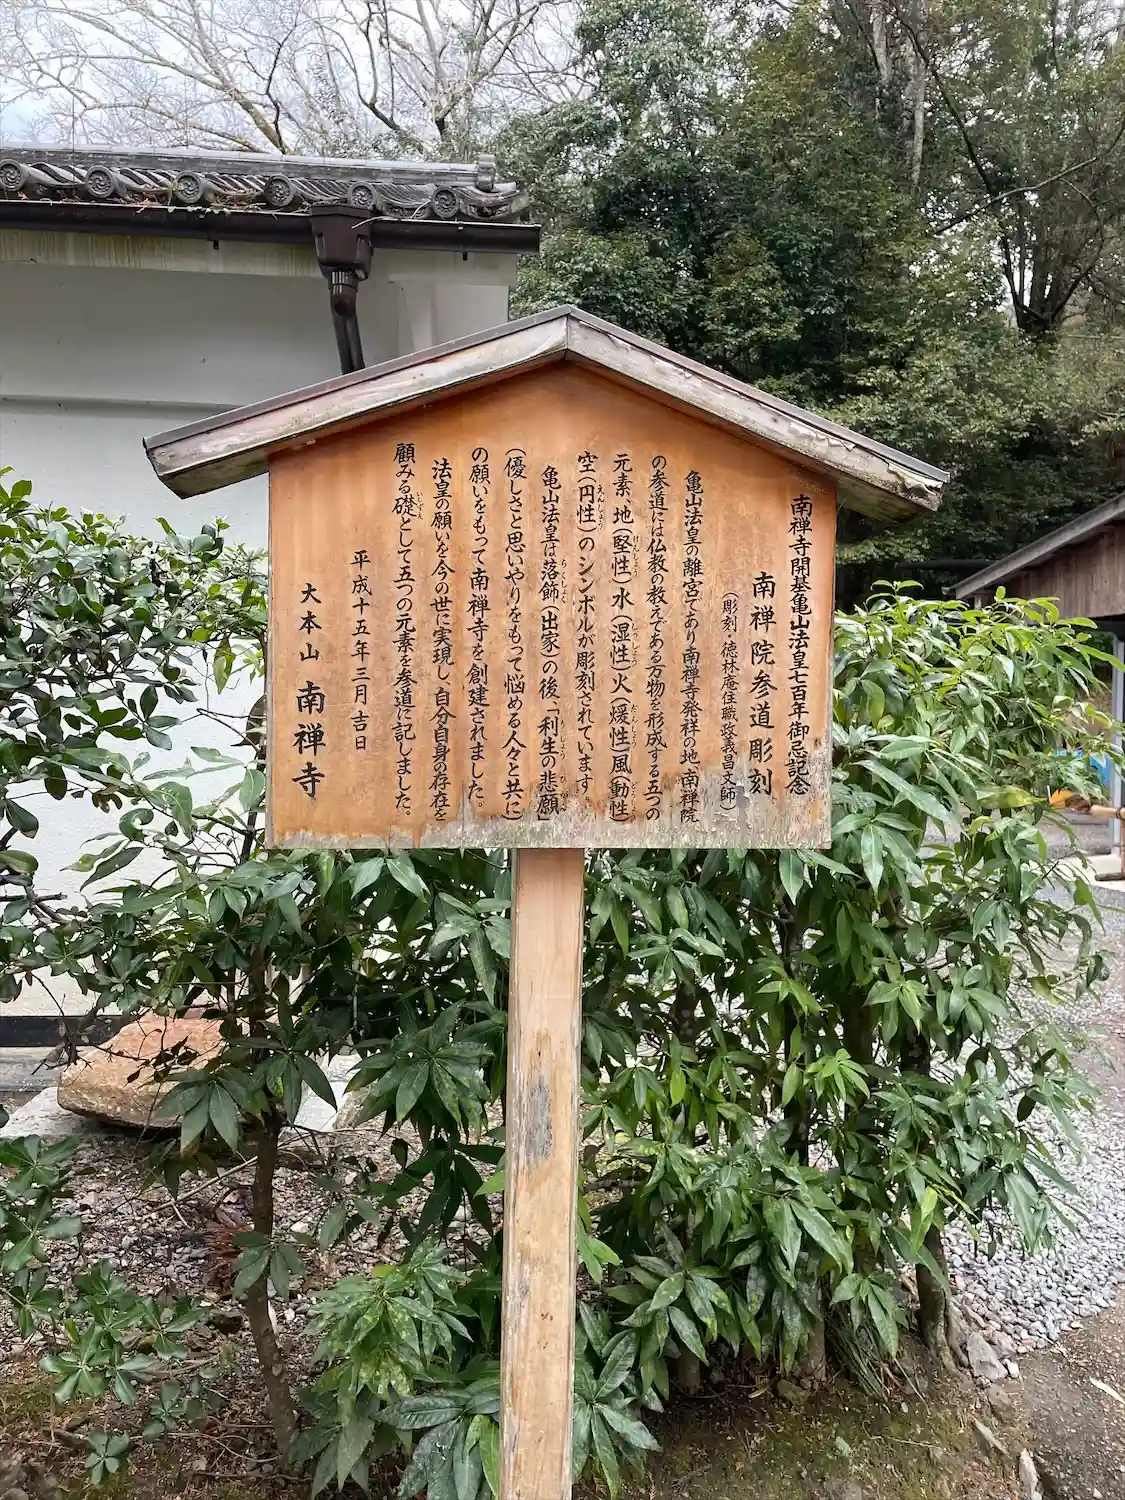 南禅寺開基亀山法皇七百年御忌記念
南禅院参道彫刻
(彫刻・徳林庵住職政義昌文師)
亀山法皇の離宮であり南禅寺発祥の地、南禅院
の参道には仏教の教えである万物を形成する五つの
元素、地(堅性)水(湿性)火(煖性)風(動性)
空(円性)のシンボルが彫刻されています。
亀山法皇は落飾(出家)の後「利生の悲願」
(優しさと思いやりをもって悩める人々と共に)
の願いをもって南禅寺を創建されました。
法皇の願いを今の世に実現し、自分自身の存在を
顧みる礎として五つの元素を参道に記しました。
平成十五年三月吉日
大本山 南禅寺